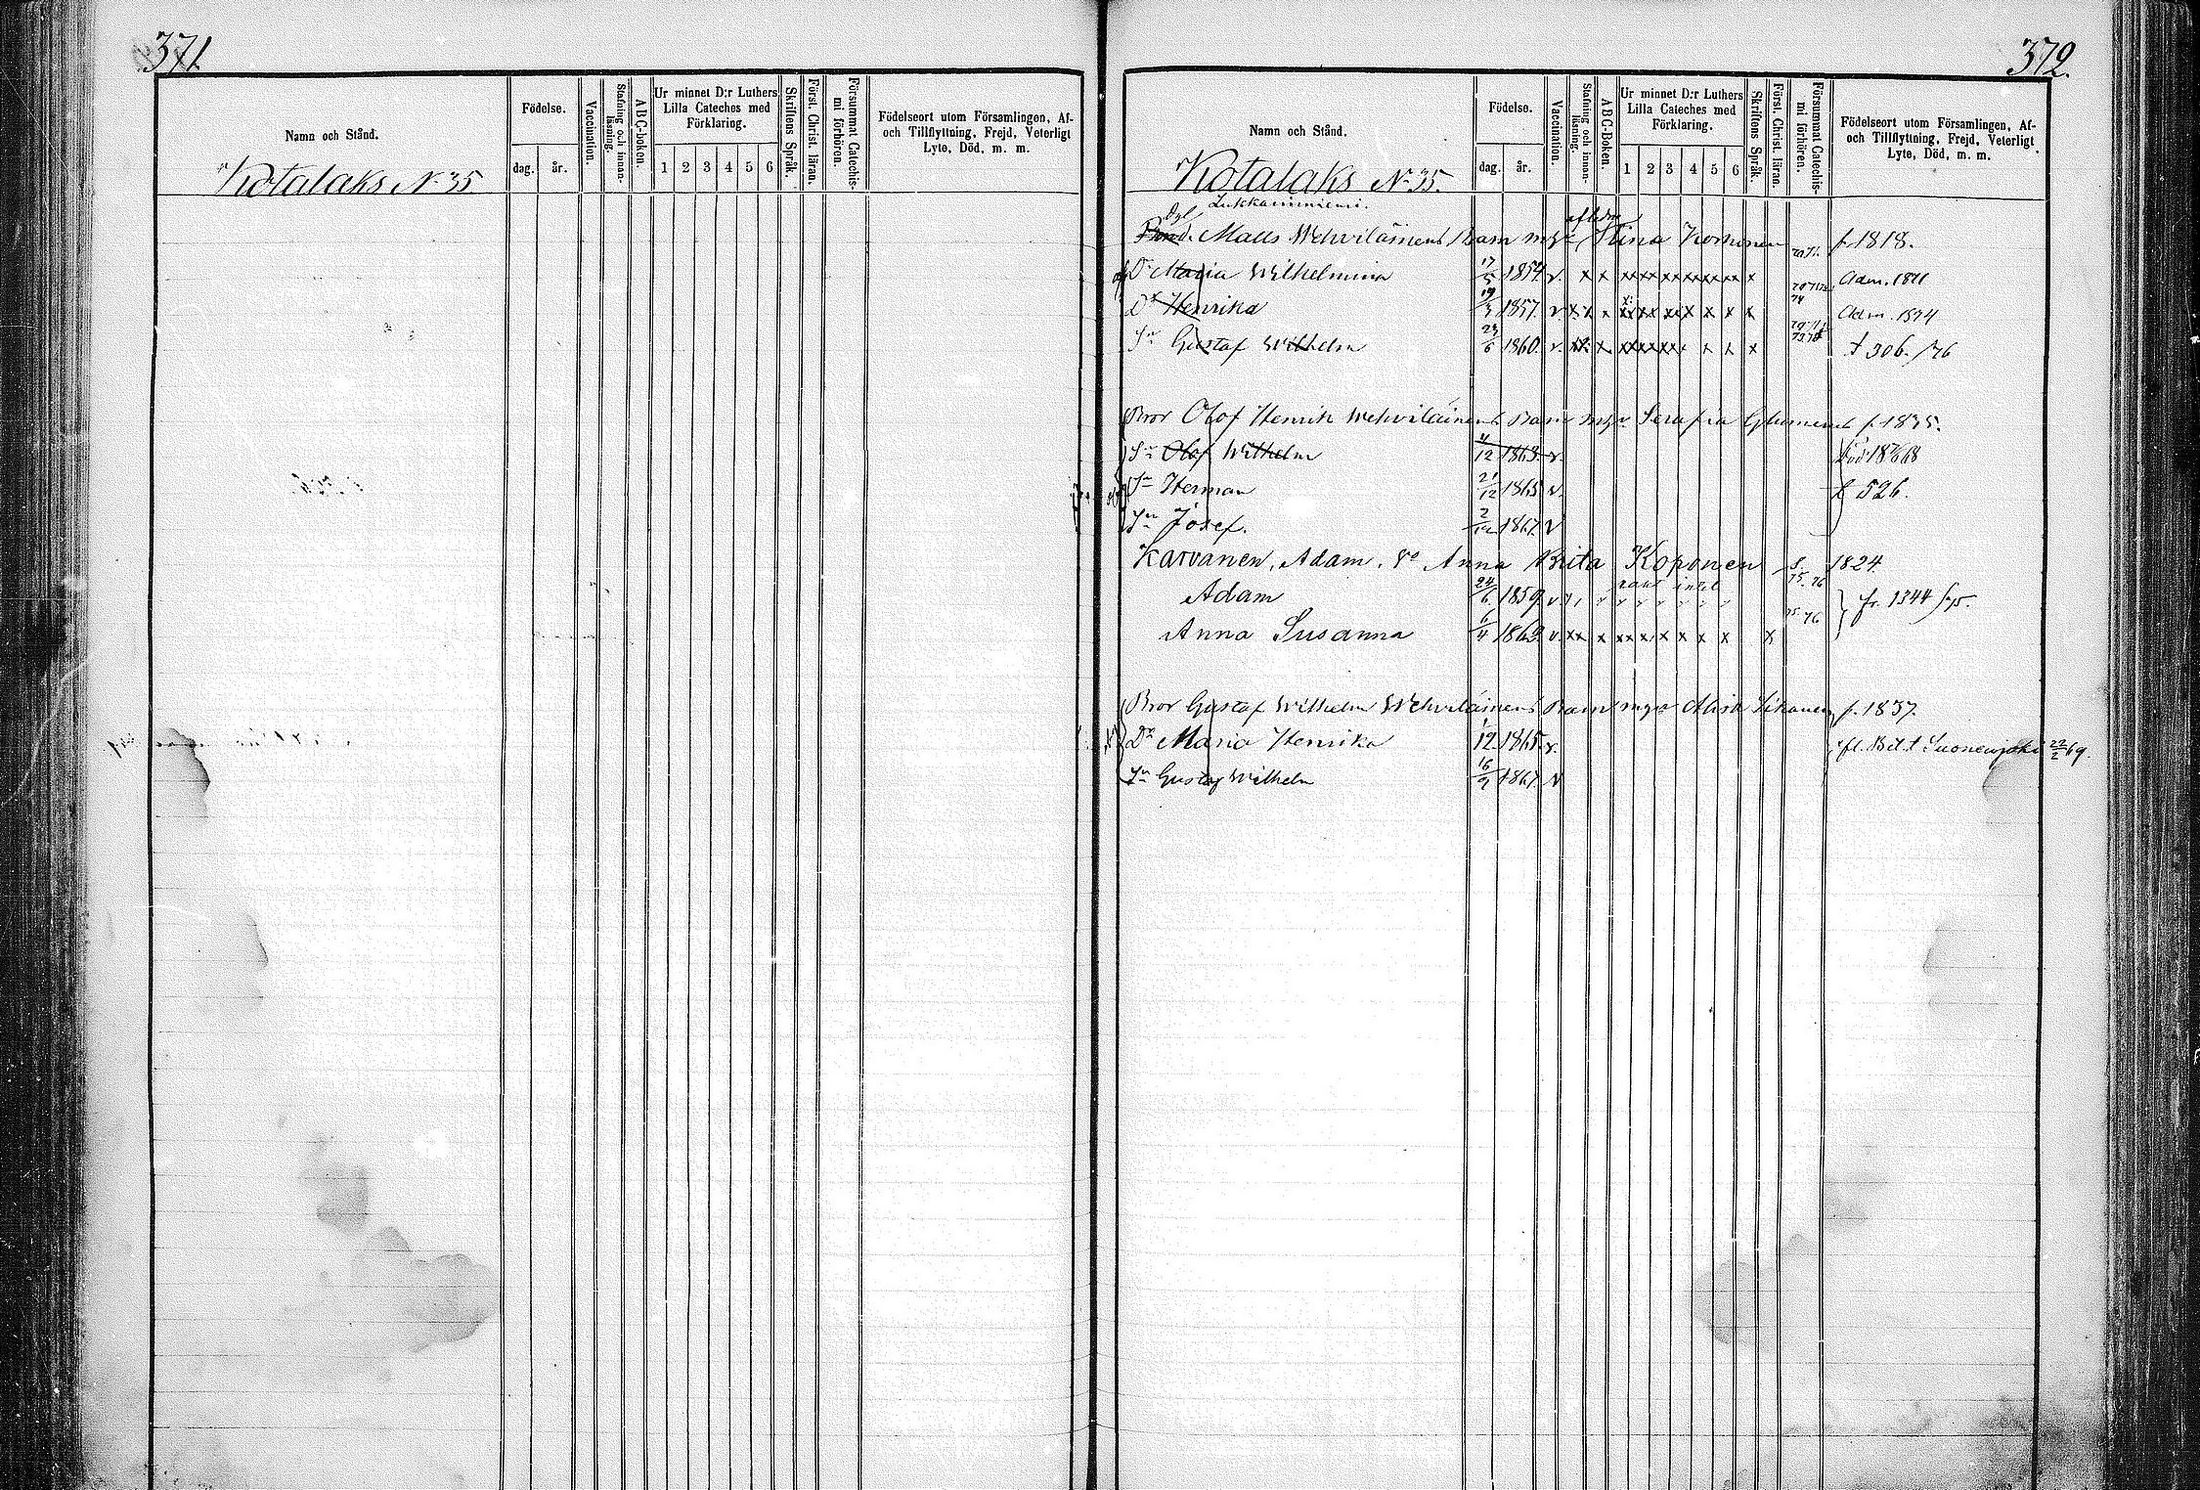 371.
Namn och Stånd.
Födelse.
dag.
år.
Vaccination.
Stafning och innan-läsning.
ABC-boken.
Ur minnet D:r Luthers Lilla Cateches med Förklaring.
1 2 3 4 5 6
Skriftens Språk.
Först. Christ. läran.
Försummat Catechis-mi förhören.
Födelseort utom Församlingen, Af- och Tillflyttning, Frejd, Veterligt Lyte, Död, m. m.
Kotalaks N 35
372.
Namn och Stånd.
Födelse.
dag.
år.
Vaccination.
Stafning och innan-läsning.
ABC-Boken.
Ur minnet D:r Luthers Lilla Cateches med Förklaring.
1 2 3 4 5 6
Skriftens Språk.
Först. Christ. läran.
Försummat Catechis-mi förhören.
Födelseort utom Församlingen, Af- och Tillflyttning, Frejd, Veterligt Lyte, Död, m. m.
Kotalaks N 35.
Matts Wehviläinens Barn m h Stina Korhonen f. 1818.
Dr Maria Wilhelmina 17/5 1854 v. x x x x x x x x x Adm. 1871
Dr Henrika 19/3 1857 v x x x x x x x x x Adm. 1874
Sn Gustaf Wilhelm 23/6 1860. v. x x x x x x x x t 306. /76
Bror Olof Henrik Wehviläinens Barn m h Serafia f. 1835.
Sn Olof Wilhelm 12 1863 v. Död 1868
Sn Herman 21/12 1865 v. t 526.
Sn Josef. 2 1867 v
Karvanen, Adam. Anna Brita Koponen 1824
75. 76
Adam 24/6 1859 v fr. 1344 /75.
75 76
Anna Susanna 6/4 1863 v. x x x x x x x x x x
Bror Gustaf Wilhelm Wehviläinens Barn m Sikanen f. 1837.
Dr Maria Henrika 1/12 1865 v. fl. Bet. t. Suonenjoki 22/2 69.
Sn Gustaf Wilhelm 16/9 1867 v